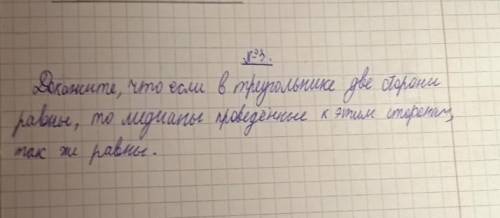 №3.
Докажите, что если в треугольнике две стороны
равны, то медианы проведённые к этим сторонам,
так же равны.